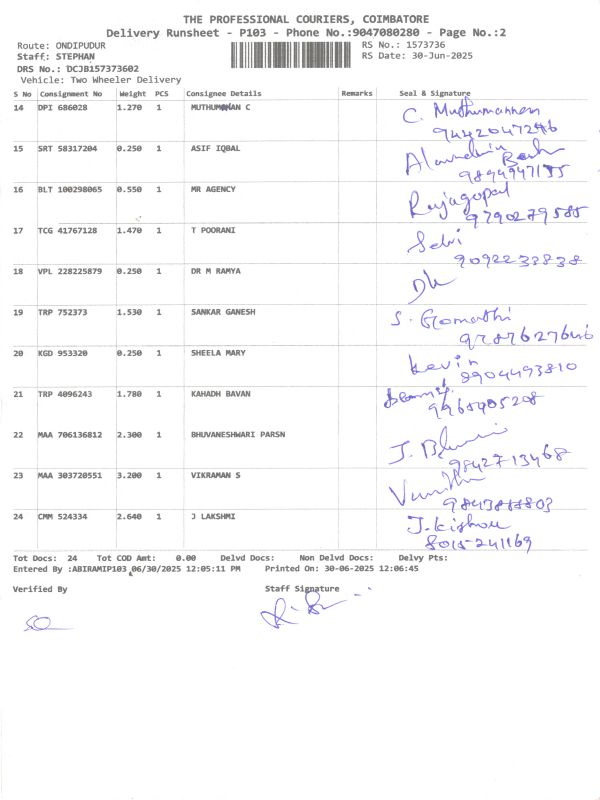 THE PROFESSIONAL COURIERS, COIMBATORE
Delivery Runsheet - P103 - Phone No.:9047080280 - Page No.:2
Route: ONDIPUDUR RS No.: 1573736
Staff: STEPHAN RS Date: 30-Jun-2025
DRS No.: DCJB157373602
Vehicle: Two Wheeler Delivery
S No Consignment No Weight PCS Consignee Details Remarks Seal & Signature
14 DPI 686028 1.270 1 MUTHUMANAN C C. Muthumannan
9442047246
15 SRT 58317204 0.250 1 ASIF IQBAL
9894947155
16 BLT 100298065 0.550 1 MR AGENCY Rajagopal
9790279585
17 TCG 41767128 1.470 1 T POORANI Selvi
9092233838
18 VPL 228225879 0.250 1 DR M RAMYA
19 TRP 752373 1.530 1 SANKAR GANESH S. Gomathi
20 KGD 953320 0.250 1 SHEELA MARY Kevin
8904493810
21 TRP 4096243 1.780 1 KAHADH BAVAN
9965905208
22 MAA 706136812 2.300 1 BHUVANESHWARI PARSN
9842713468
23 MAA 303720551 3.200 1 VIKRAMAN S
24 CMM 524334 2.640 1 J LAKSHMI J. Kishore
8015-241169
Tot Docs: 24 Tot COD Amt: 0.00 Delvd Docs: Non Delvd Docs: Delvy Pts:
Entered By :ABIRAMIP103 06/30/2025 12:05:11 PM Printed On: 30-06-2025 12:06:45
Verified By Staff Signature